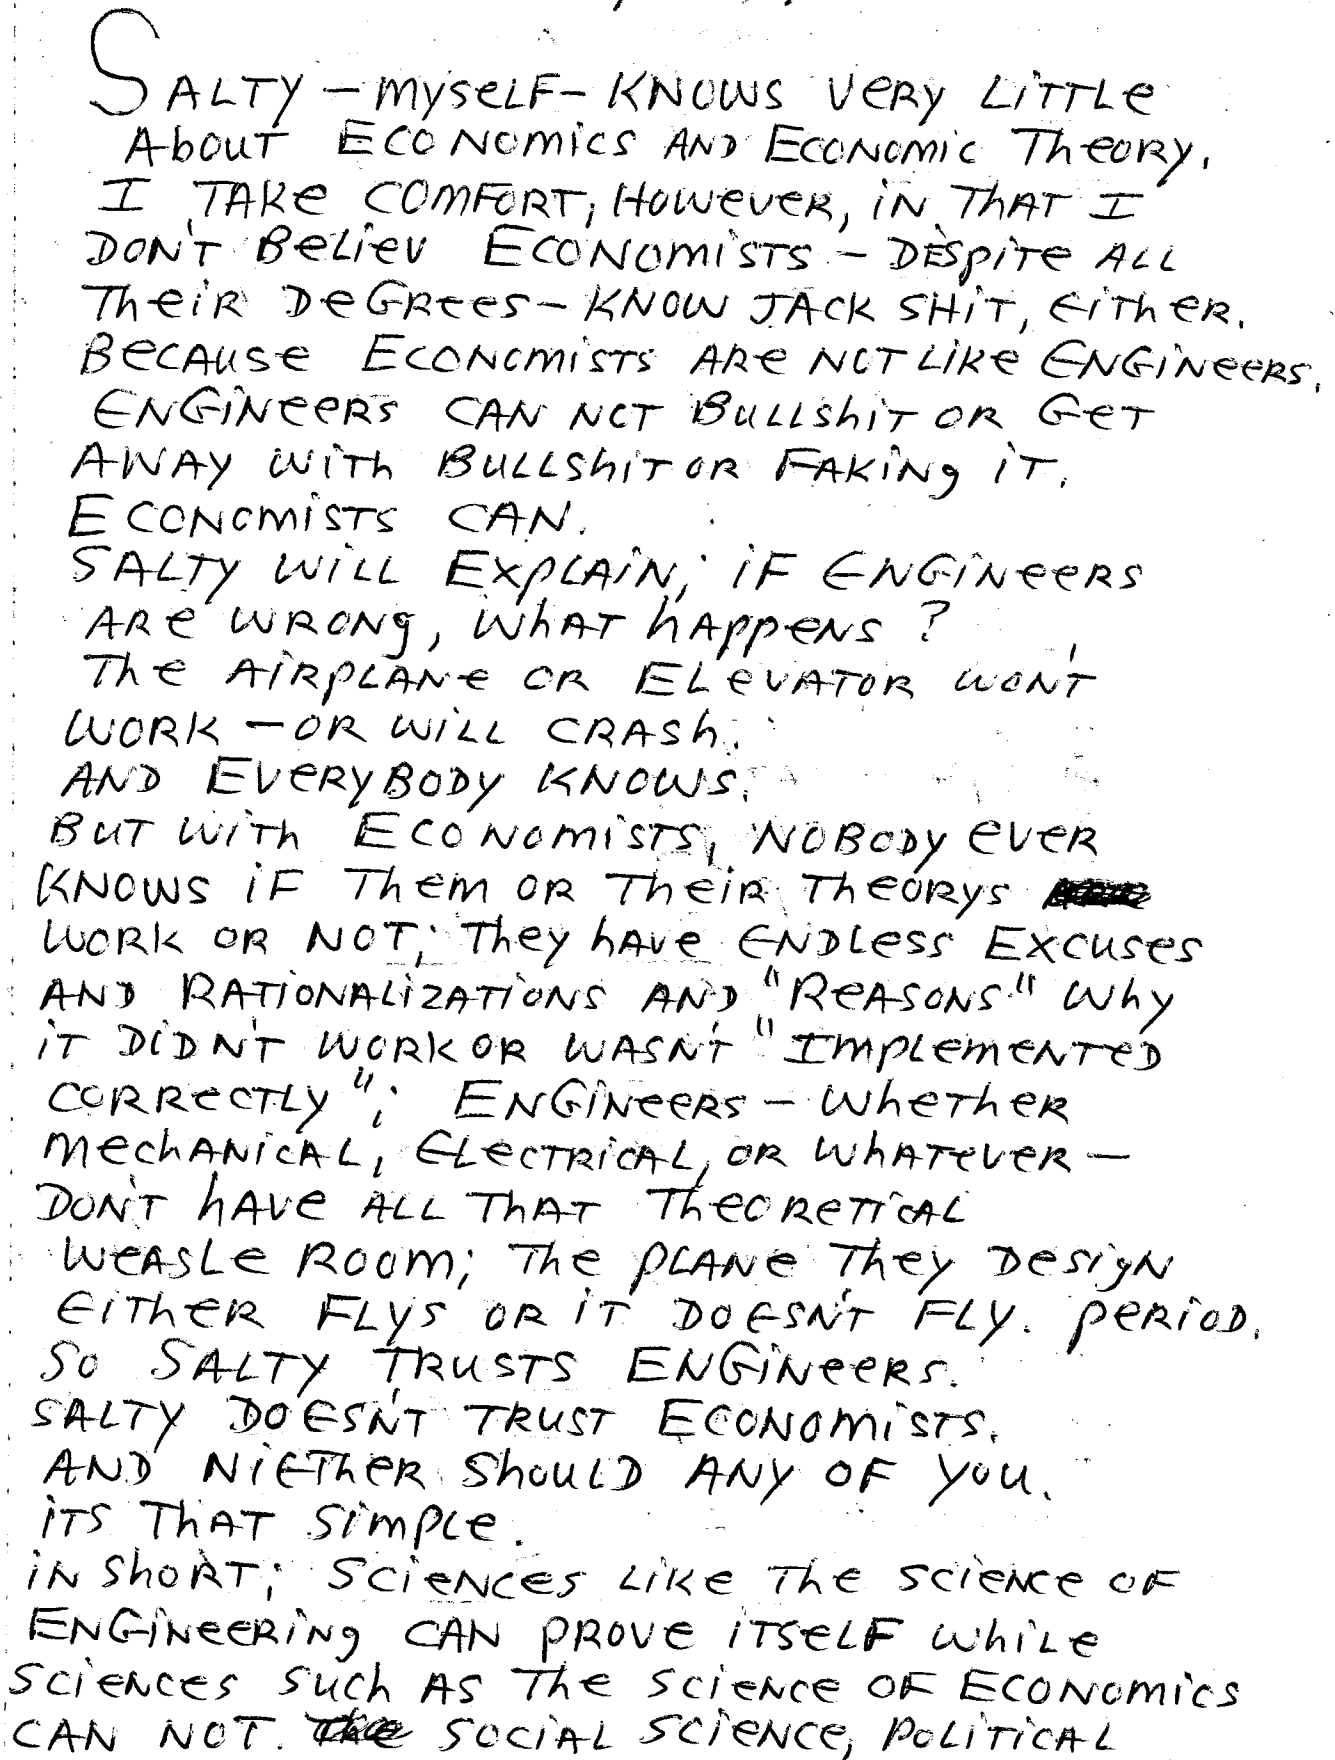 SALTY – MYSELF – KNOWS VERY LITTLE
ABOUT ECONOMICS AND ECONOMIC THEORY.
I TAKE COMFORT, HOWEVER, IN THAT I
DON'T BELIEV ECONOMISTS – DESPITE ALL
THEIR DEGREES – KNOW JACK SHIT, EITHER.
BECAUSE ECONOMISTS ARE NOT LIKE ENGINEERS.
ENGINEERS CAN NOT BULLSHIT OR GET
AWAY WITH BULLSHIT OR FAKING IT.
ECONOMISTS CAN.
SALTY WILL EXPLAIN; IF ENGINEERS
ARE WRONG, WHAT HAPPENS ?
THE AIRPLANE OR ELEVATOR WON'T
WORK – OR WILL CRASH.
AND EVERYBODY KNOWS.
BUT WITH ECONOMISTS, NOBODY EVER
KNOWS IF THEM OR THEIR THEORYS
WORK OR NOT; THEY HAVE ENDLESS EXCUSES
AND RATIONALIZATIONS AND "REASONS" WHY
IT DIDN'T WORK OR WASN'T "IMPLEMENTED
CORRECTLY"; ENGINEERS – WHETHER
MECHANICAL, ELECTRICAL, OR WHATEVER –
DON'T HAVE ALL THAT THEORETICAL
WEASLE ROOM; THE PLANE THEY DESIGN
EITHER FLYS OR IT DOESN'T FLY. PERIOD.
SO SALTY TRUSTS ENGINEERS.
SALTY DOESN'T TRUST ECONOMISTS.
AND NIETHER SHOULD ANY OF YOU.
ITS THAT SIMPLE.
IN SHORT; SCIENCES LIKE THE SCIENCE OF
ENGINEERING CAN PROVE ITSELF WHILE
SCIENCES SUCH AS THE SCIENCE OF ECONOMICS
CAN NOT. SOCIAL SCIENCE, POLITICAL